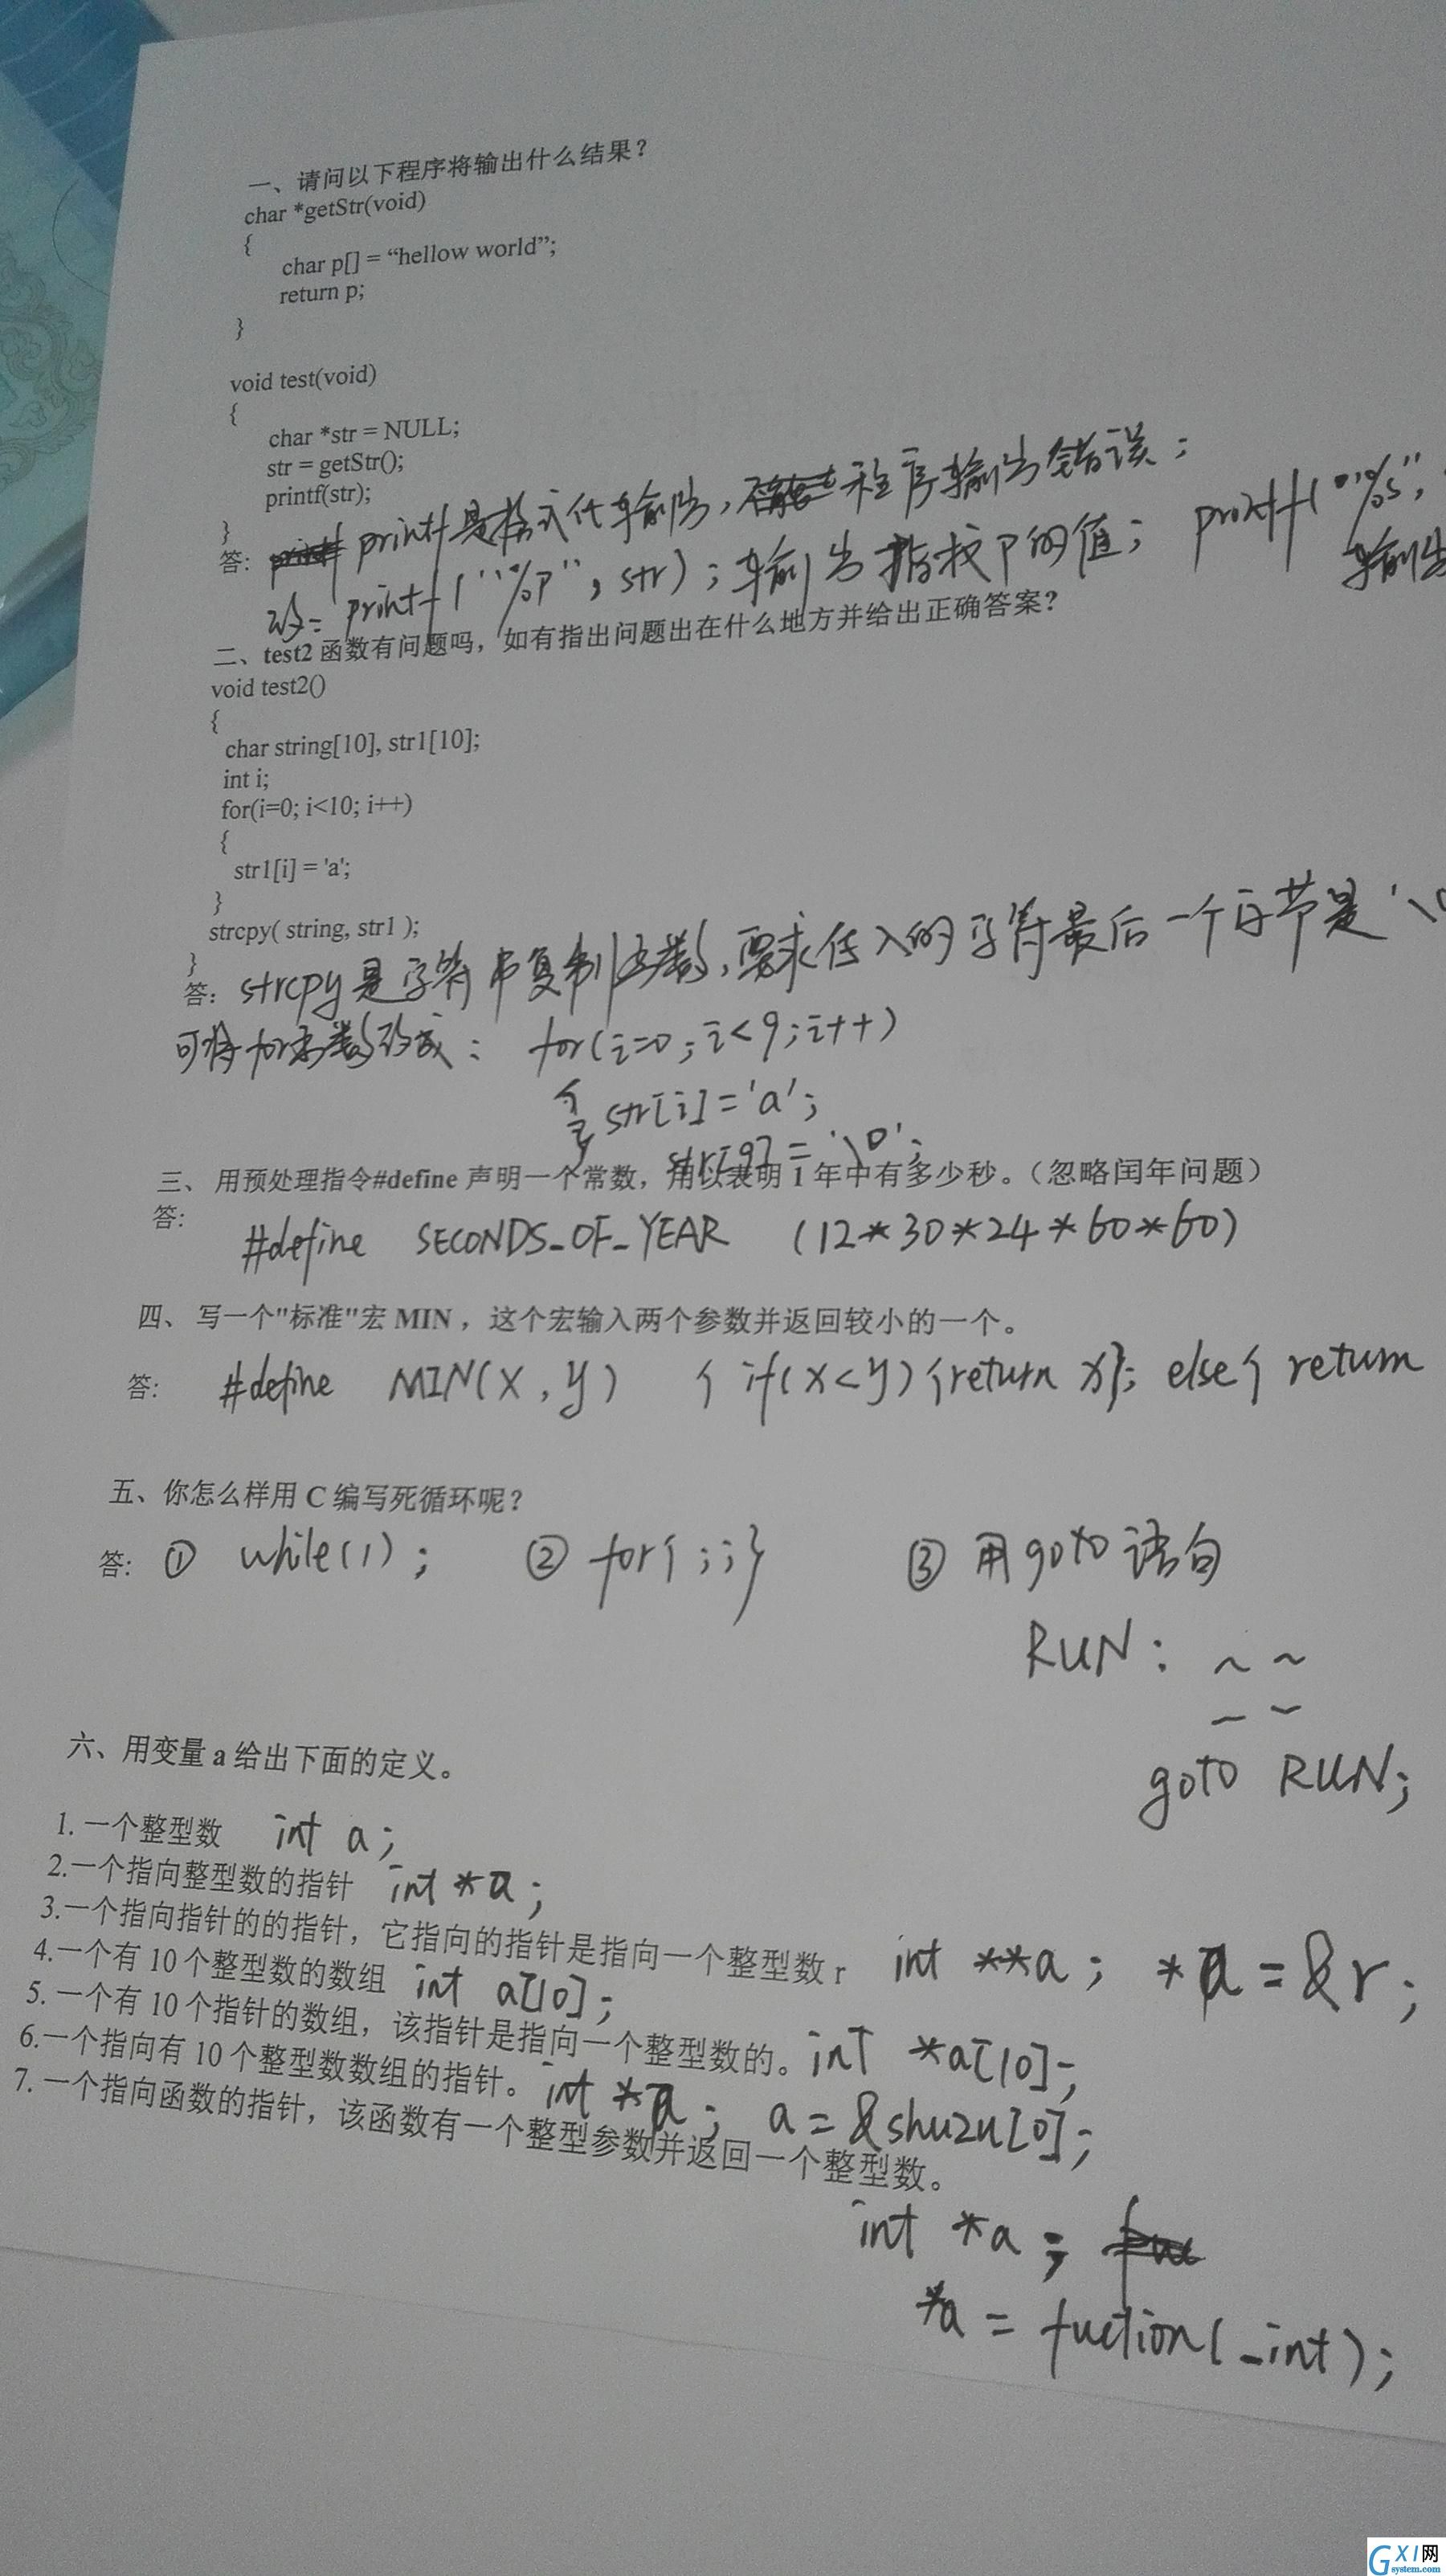 一、请问以下程序将输出什么结果？
char *getStr(void)
{
char p[] = “hellow world”;
return p;
}
void test(void)
{
char *str = NULL;
str = getStr();
printf(str);
}
答: printf是格式化输出, 程序输出错误;
改: printf("%p", str); 输出指针P的值; printf("%s",
输出
二、test2 函数有问题吗，如有指出问题出在什么地方并给出正确答案？
void test2()
{
char string[10], str1[10];
int i;
for(i=0; i<10; i++)
{
str1[i] = 'a';
}
strcpy( string, str1 );
}
答: strcpy是字符串复制函数, 要求传入的字符最后一个字节是'\0
可将for函数改成: for(i=0; i<9; i++)
{ str[i]='a';
str[9]='\0';
三、 用预处理指令#define 声明一个常数，用以表明 1 年中有多少秒。（忽略闰年问题）
答: #define SECONDS_OF_YEAR (12*30*24*60*60)
四、 写一个"标准"宏 MIN ，这个宏输入两个参数并返回较小的一个。
答: #define MIN(X,y) { if(x<y){return x}; else{ return
五、你怎么样用 C 编写死循环呢？
答: ① while(1); ② for{;;} ③ 用goto语句
RUN: ~ ~
~ ~
goto RUN;
六、用变量 a 给出下面的定义。
1. 一个整型数 int a;
2.一个指向整型数的指针 int *a;
3.一个指向指针的的指针，它指向的指针是指向一个整型数 r int **a; *a=&r;
4.一个有 10 个整型数的数组 int a[10];
5. 一个有 10 个指针的数组，该指针是指向一个整型数的。int *a[10];
6.一个指向有 10 个整型数数组的指针。int *a; a=&shuzu[0];
7. 一个指向函数的指针，该函数有一个整型参数并返回一个整型数。
int *a;
*a = fuction(_int);
GXI网
system.com